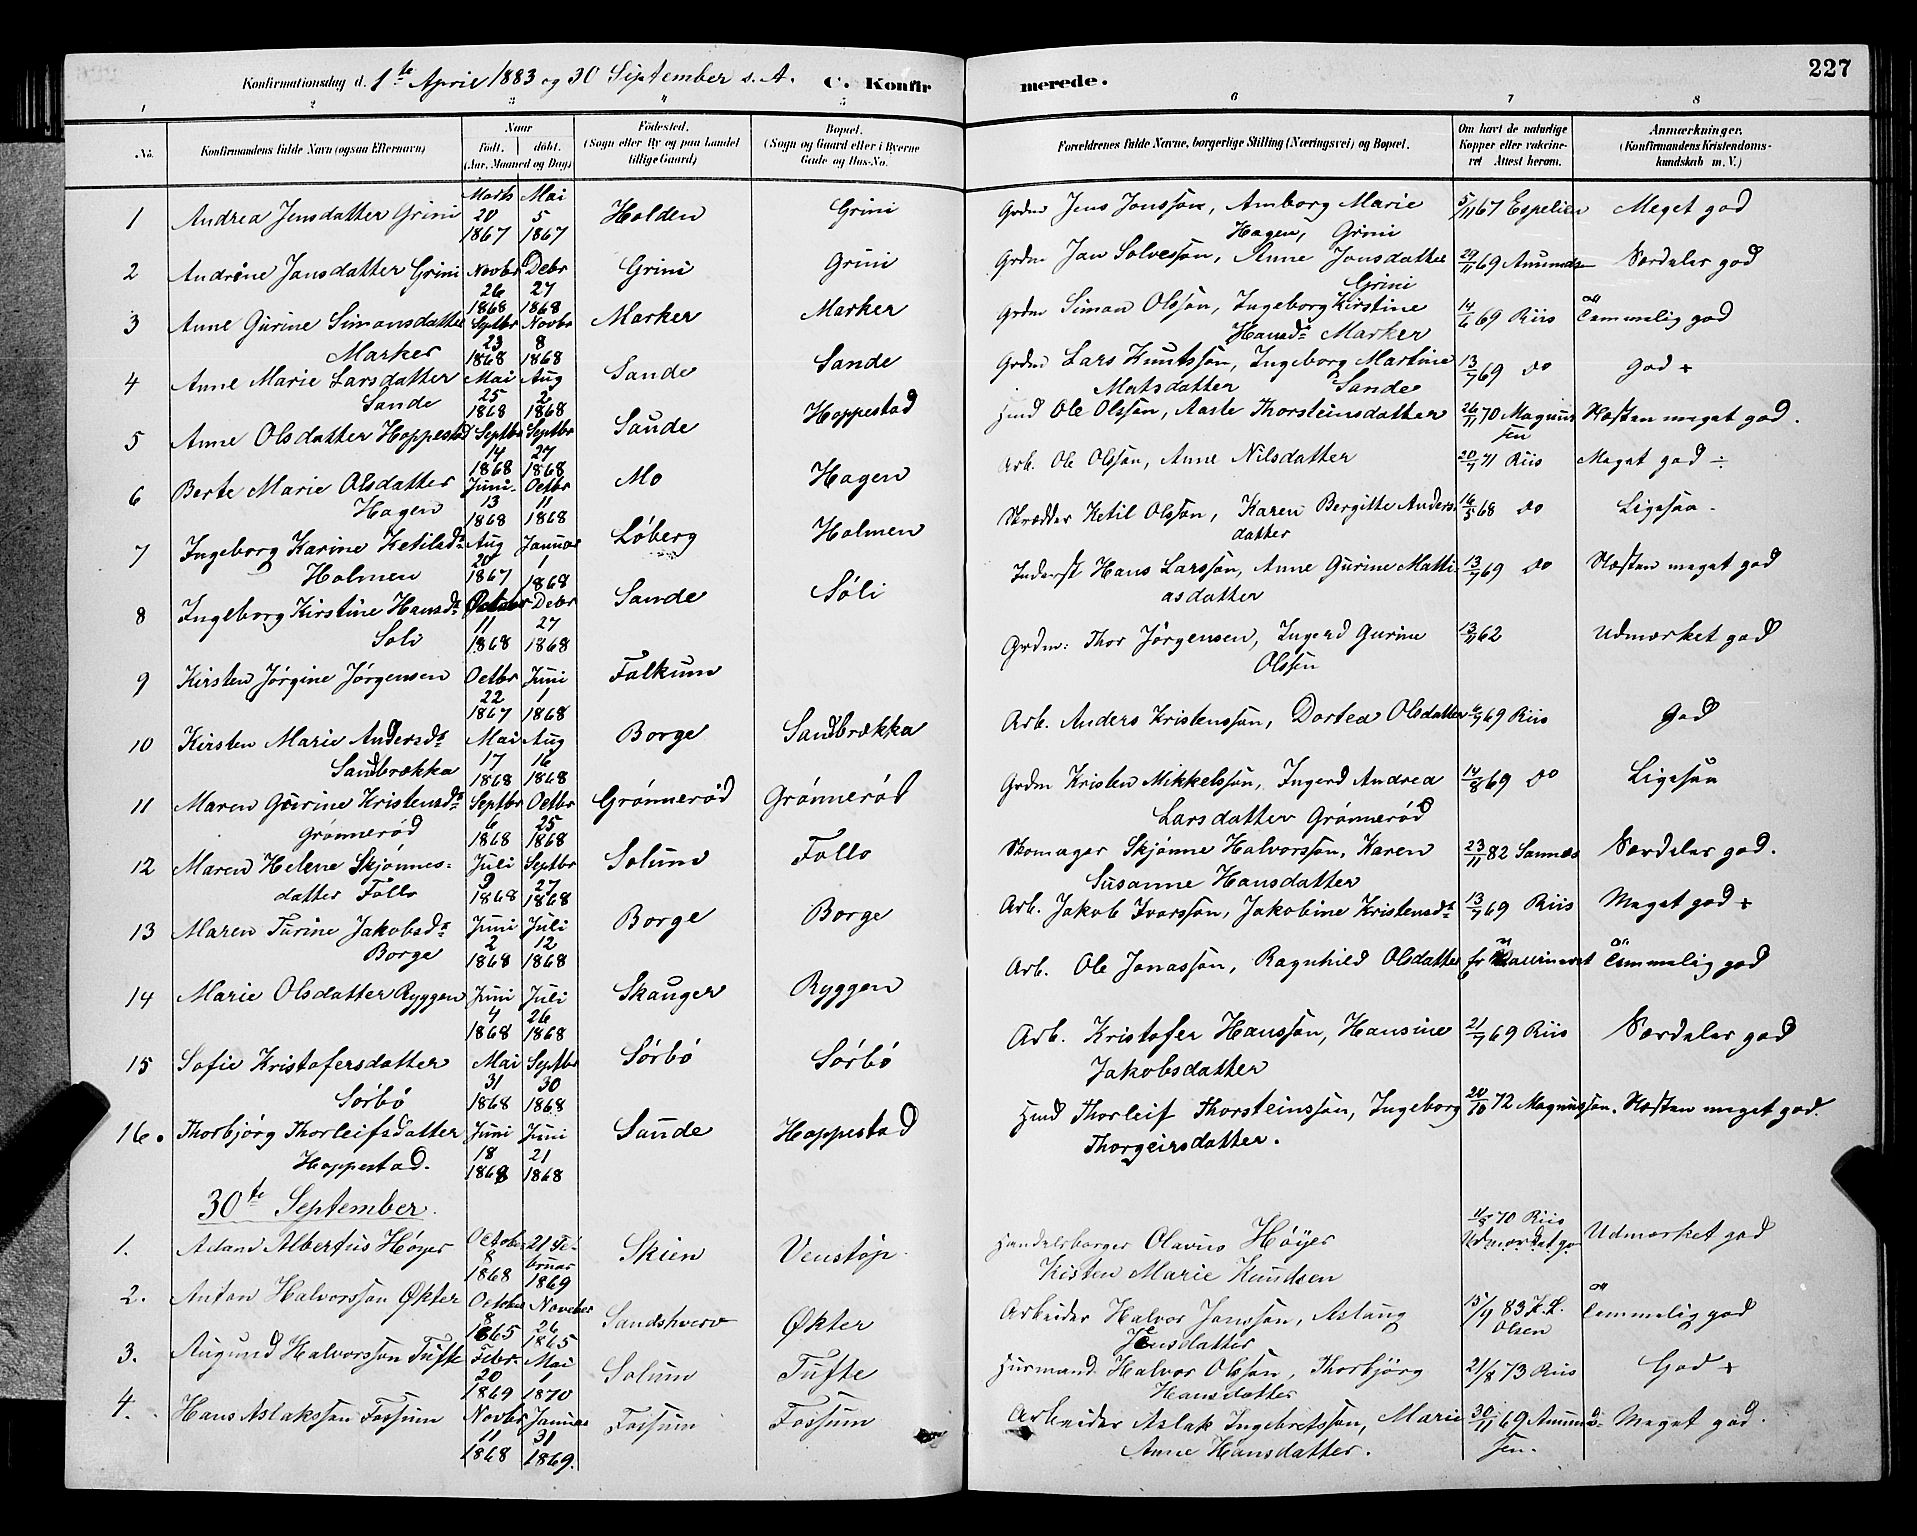 227
Konfirmationsdag d. 1te April 1883 og 30 September s. A. C. Konfirmerede.
1 2 3 4 5 6 7 8
No. Konfirmandens fulde Navn (ogsaa Efternavn) Naar Født. døbt. (Aar, Maaned og Dag) Fødested. (Sogn eller By og paa Landet tillige Gaard) Bopæl. (Sogn og Gaard eller i Byerne Gade og Hus-No. Forældrenes fulde Navne, borgerlige Stilling (Næringsvei) og Bopæl. Om havt de naturlige Kopper eller vakcineret Attest herom. Anmærkninger. (Konfirmandens Kristendomskundskab m. V.)
1 Andrea Jensdatter Grini Marts 20 1867 Mai 5 1867 Holden Grini Grdm Jens Jonssøn, Amborg Marie Hagen, Grini 5/11 67 Espelien Meget god
2 Andrine Jansdatter Grini Novbr 26 1868 Debr 27 1868 Grini Grini Grdm Jan Solvessøn, Anne Jonsdatter Grini 29/11 69 Amunds Særdeles god
3 Anne Gurine Simonsdatter Marker Septbr 23 1868 Novbr 8 1868 Marker Marker Grdm Simon Olssøn, Ingeborg Kirstine Hansdr Marker 14/6 69 Riis Temmelig god
4 Anne Marie Larsdatter Sande Mai 25 1868 Aug 2 1868 Sande Sande Grdm Lars Knutssøn, Ingeborg Martine Matsdatter Sande 13/7 69 do God +
5 Anne Olsdatter Hoppestad Septbr 14 1868 Septbr 27 1868 Saude Hoppestad Hmd Ole Olssøn, Aaste Thorsteinsdatter 26/11 70 Magnussen Næsten meget god.
6 Berte Marie Olsdatter Hagen Juni 13 1868 Octbr 11 1868 Mo Hagen Arb. Ole Olssøn, Anne Nilsdatter 20/7 71 Riis Meget god ÷
7 Ingeborg Karine Ketilsdr Holmen Aug 20 1867 Januar 1 1868 Løberg Holmen Skrædder Ketil Olssøn, Karen Bergitte Andersdatter 16/5 68 do Ligesaa
8 Ingeborg Kirstine Hansdr Soli October 11 1868 Debr 27 1868 Sande Søli Inderst Hans Larssøn, Anne Gurine Mattiasdatter 13/7 69 do Næsten meget god
9 Kirsten Jørgine Jørgensen Octbr 22 1867 Juni 1 1868 Falkum Grdm: Thor Jørgensen, Ingerd Gurine Olssen 13/11 62 Udmærket god
10 Kirsten Marie Andersdr Sandbrækka Mai 17 1868 Aug 16 1868 Borge Sandbrækka Arb. Anders Kristenssøn, Dortea Olsdatter 6/7 69 Riis God
11 Maren Gurine Kristensdr Grønnerød Septbr 6 1868 Octbr 25 1868 Grønnerød Grønnerød Grdm Kristen Mikkelssøn, Ingerd Andrea Larsdatter Grønnerød 14/8 69 do Ligesaa
12 Maren Helene Skjønnesdatter Follo Juli 9 1868 Septbr 27 1868 Solum Follo Skomager Skjønne Halvorssøn, Karen Susanne Hansdatter 23/11 82 Sannæs Særdeles god.
13 Maren Turine Jakobsdr Borge Juni 2 1868 Juli 12 1868 Borge Borge Arb. Jakob Ivarssøn, Jakobine Kristensdr 13/7 69 Riis Meget god +
14 Marie Olsdatter Ryggen Juni 4 1868 Juli 26 1868 Skauger Ryggen Arb. Ole Jonassøn, Ragnhild Olsdatter Temmelig god
15 Sofie Kristofersdatter Sørbø Mai 31 1868 Septbr 30 1868 Sørbø Sørbø Arb. Kristofer Hanssøn, Hansine Jakobsdatter 21/7 69 Riis Særdeles god
16. Thorbjørg Thorleifsdatter Hoppestad. Juni 18 1868 Juni 21 1868 Saude Hoppestad Hmd Thorleif Thorsteinssøn, Ingeborg Thorgeirsdatter. 20/10 72 Magnussøn. Næsten meget god.
30te September.
1. Adam Albertus Høyer October 8 1868 21 Februar 1869 Skien Venstøp Handelsborger Olavus Høyer Kisten Marie Knudsen 11/8 70 Riis Udmærket god
2. Anton Halvorssøn Økter October 8 1865 November 26 1865 Sandshverv Økter Arbeider Halvor Janssøn, Aslaug Jensdatter 15/9 83 K.K. Olsen Temmelig god
3. Augund Halvorssøn Tufte Febr. 20 1869 Mai 1 1870 Solum Tufte Husmand Halvor Olssøn, Thorbjørg Hansdatter 21/8 73 Riis God +
4. Hans Aslakssøn Fossum Novbr 11 1868 Januar 31 1869. Fossum Fossum Arbeider Aslak Ingebretssøn, Marie Anne Hansdatter. 30/11 69 Amundsen. Meget god.